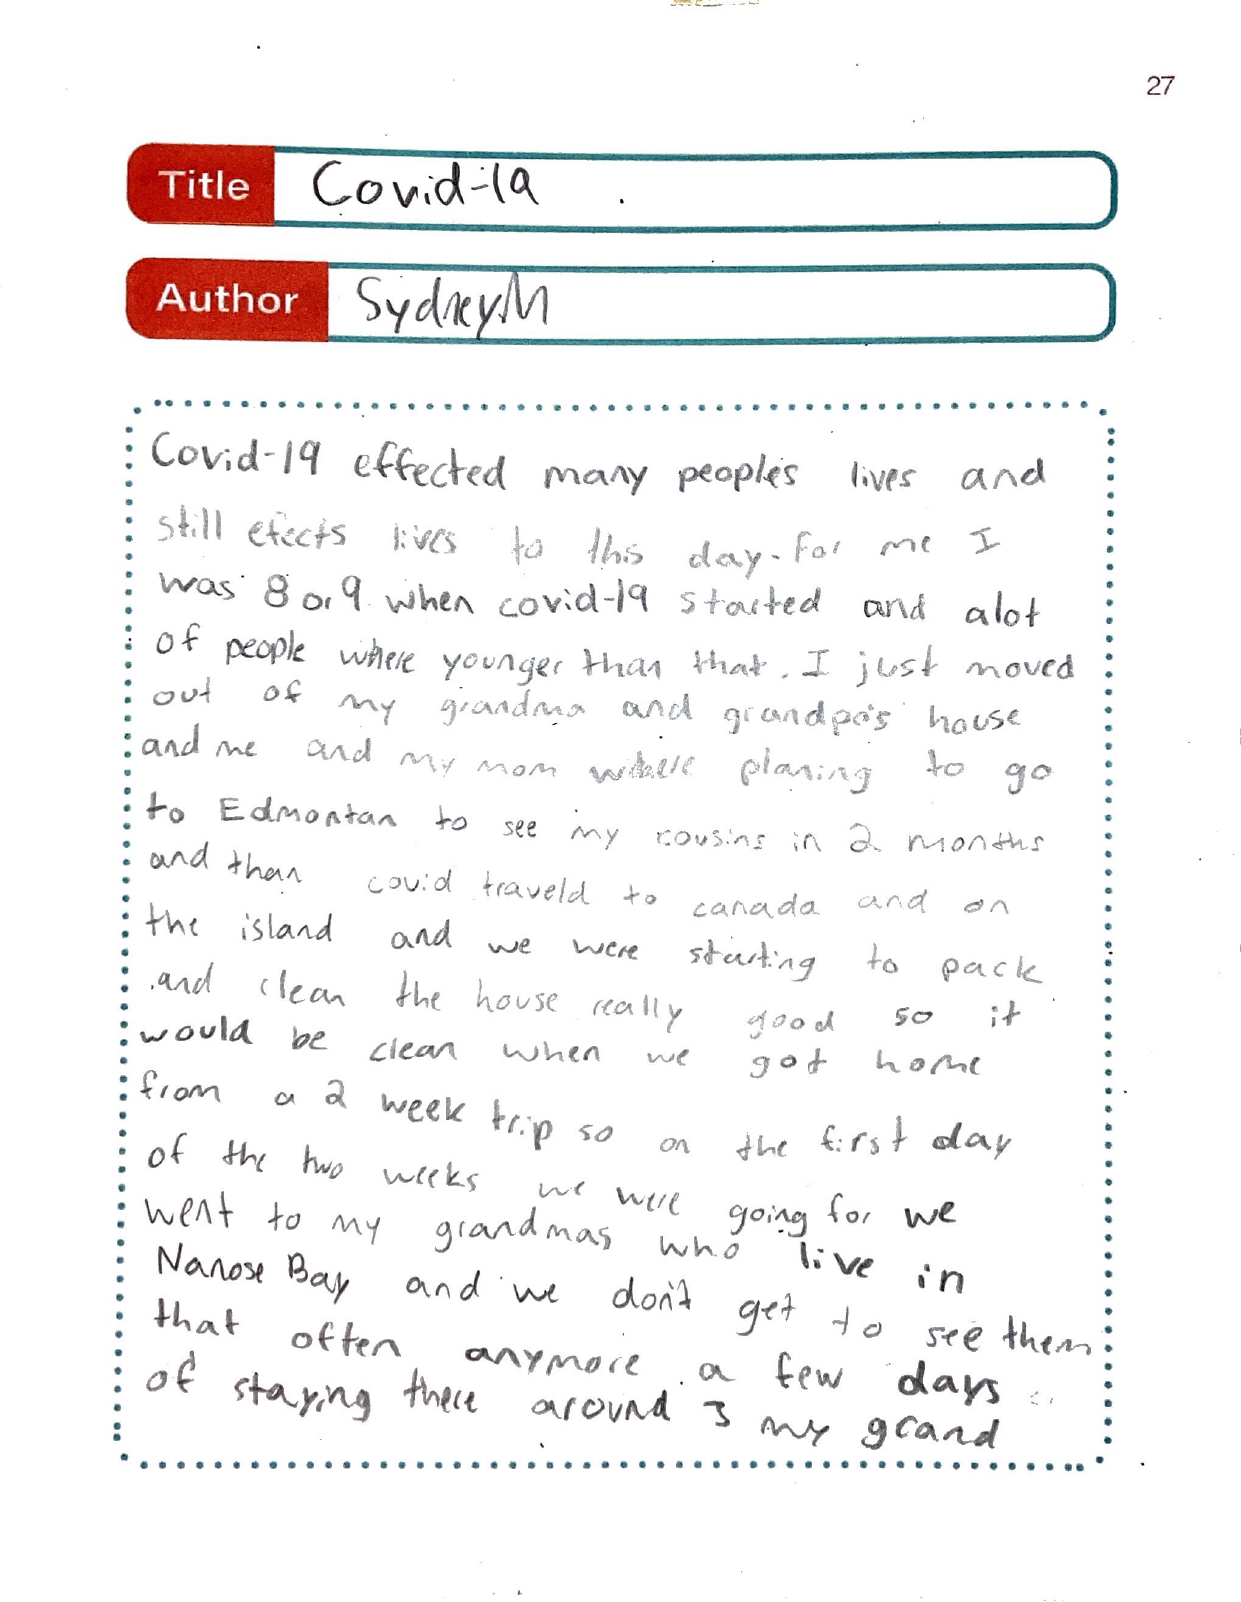 27
Title Covid-19
Author Sydney.M
Covid-19 effected many people's lives and
still efects lives to this day. for me I
was 8 or 9 when covid-19 started and alot
of people where younger than that. I just moved
out of my grandma and grandpa's house
and me and my mom where planing to go
to Edmontan to see my cousins in 2 months
and than covid traveld to canada and on
the island and we were starting to pack
and clean the house really good so it
would be clean when we got home
from a 2 week trip so on the first day
of the two weeks we were going for we
went to my grandmas who live in
Nanose Bay and we don't get to see them
that often anymore a few days
of staying there around 3 my grand